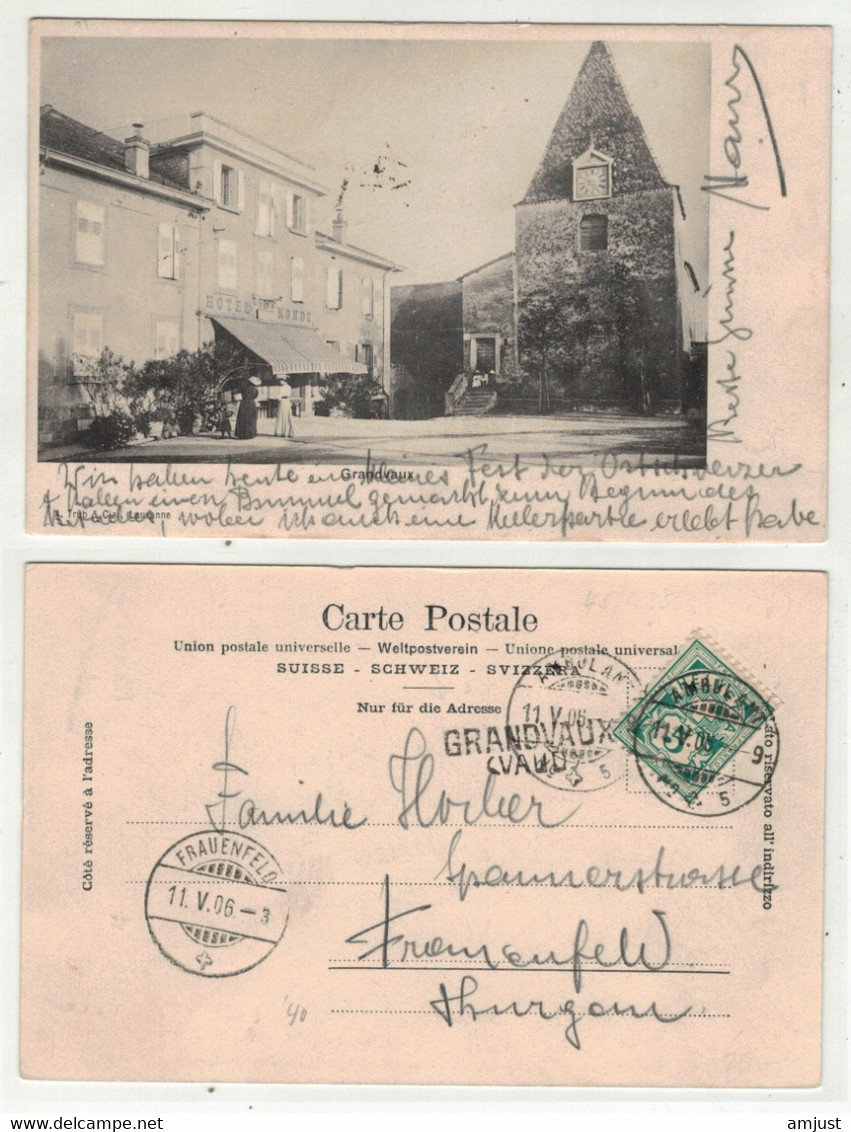 HÔTEL DU MONDE
Grandvaux
A. Trüb & Cie., Lausanne
Wir haben heute ein kleines Fest der Ostschweizer
einen Bummel gemacht zum Beginn des
wobei ich auch eine Kellerpartie erlebt habe.
Beste Grüsse
Carte Postale
Union postale universelle — Weltpostverein — Unione postale universal
SUISSE - SCHWEIZ - SVIZZERA
Nur für die Adresse
AMBULANT
11.V.06
5
AMBULANT
11.V.06 9
5
GRANDVAUX
(VAUD)
Côté réservé à l'adresse
Lato riservato all' indirizzo
Familie
Spannerstrasse
Frauenfeld
Thurgau
FRAUENFELD
11.V.06.-3
amjust
delcampe.net